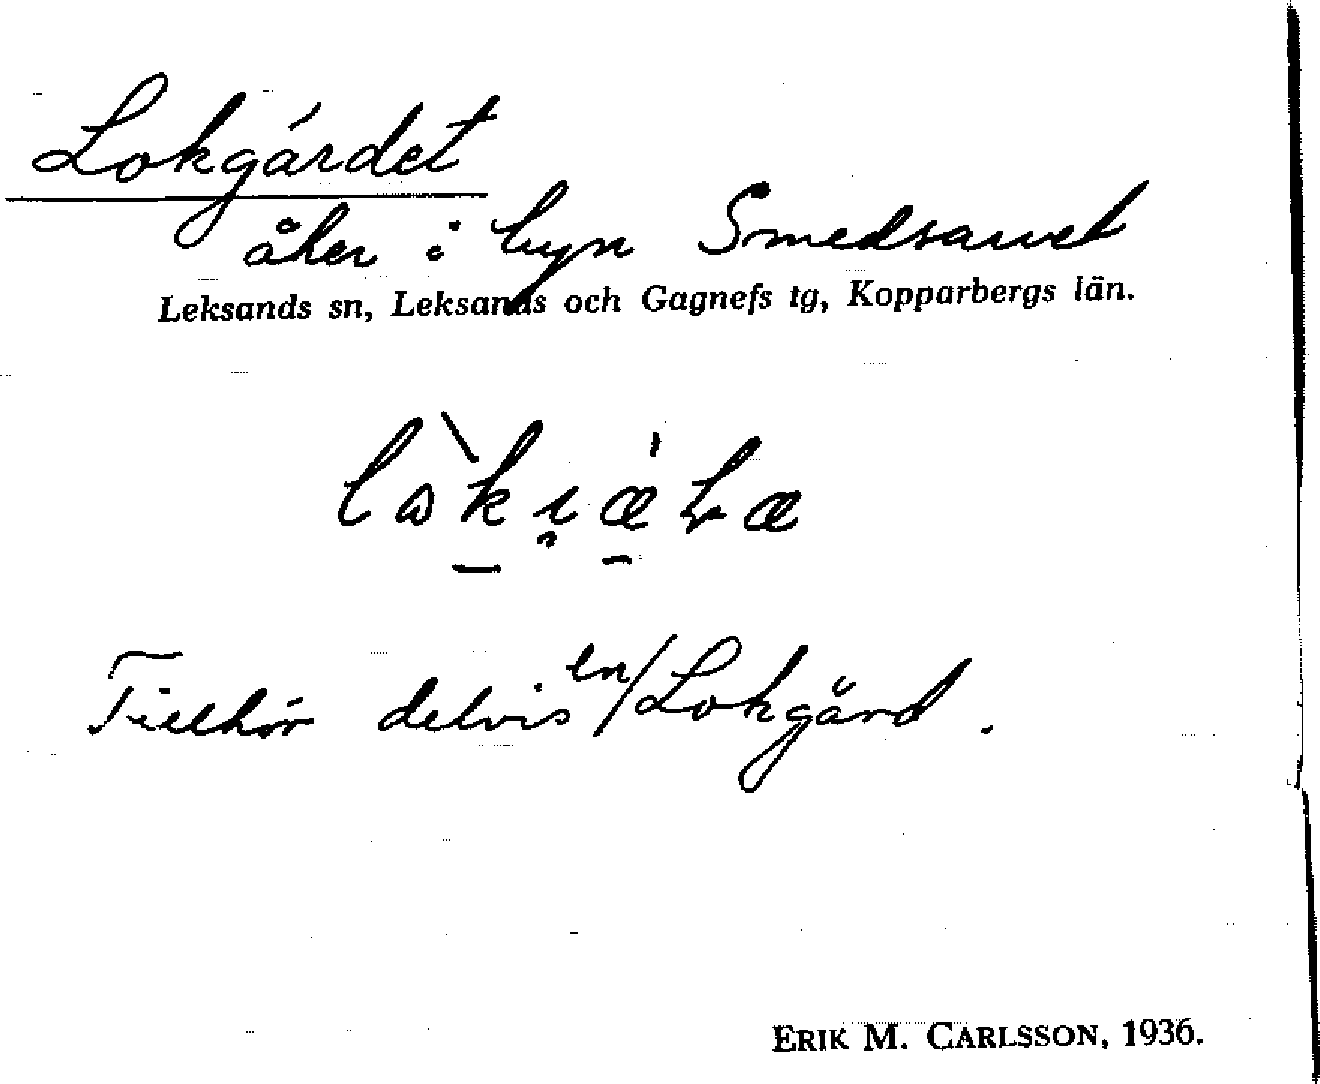 Lokgärdet
åker i byn Smedsarvet
Leksands sn, Leksands och Gagnefs tg, Kopparbergs län.
Tillhör delvis en/Lokgård.
ERIK M. CARLSSON, 1936.